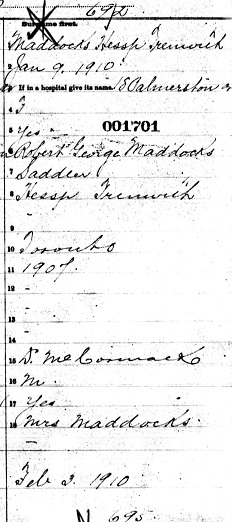 692
Surname first.
Maddocks Hessp Trenwith
2 Jan 9, 1910
3 If in a hospital give its name. 18 Palmerston
4 F
5 Yes
001701
6 Robert George Maddocks
7 Saddler
8 Hessp Trenwith
9 -
10 Toronto
11 1907.
12 -
13 -
14 -
15 Dr McCormack
16 M.
17 Yes
18 Mrs Maddocks.
-
Feb 3. 1910
N 695